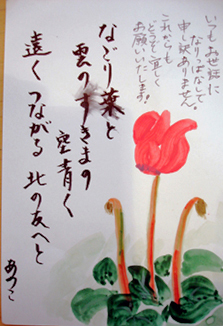 いつもお世話に
なりっぱなしで
申し訳ありません。
これからも
どうぞ宜しく
お願いいたします!
なごり葉と
雲のすきまの
空青く
遠くつながる北の友へと
あつこ